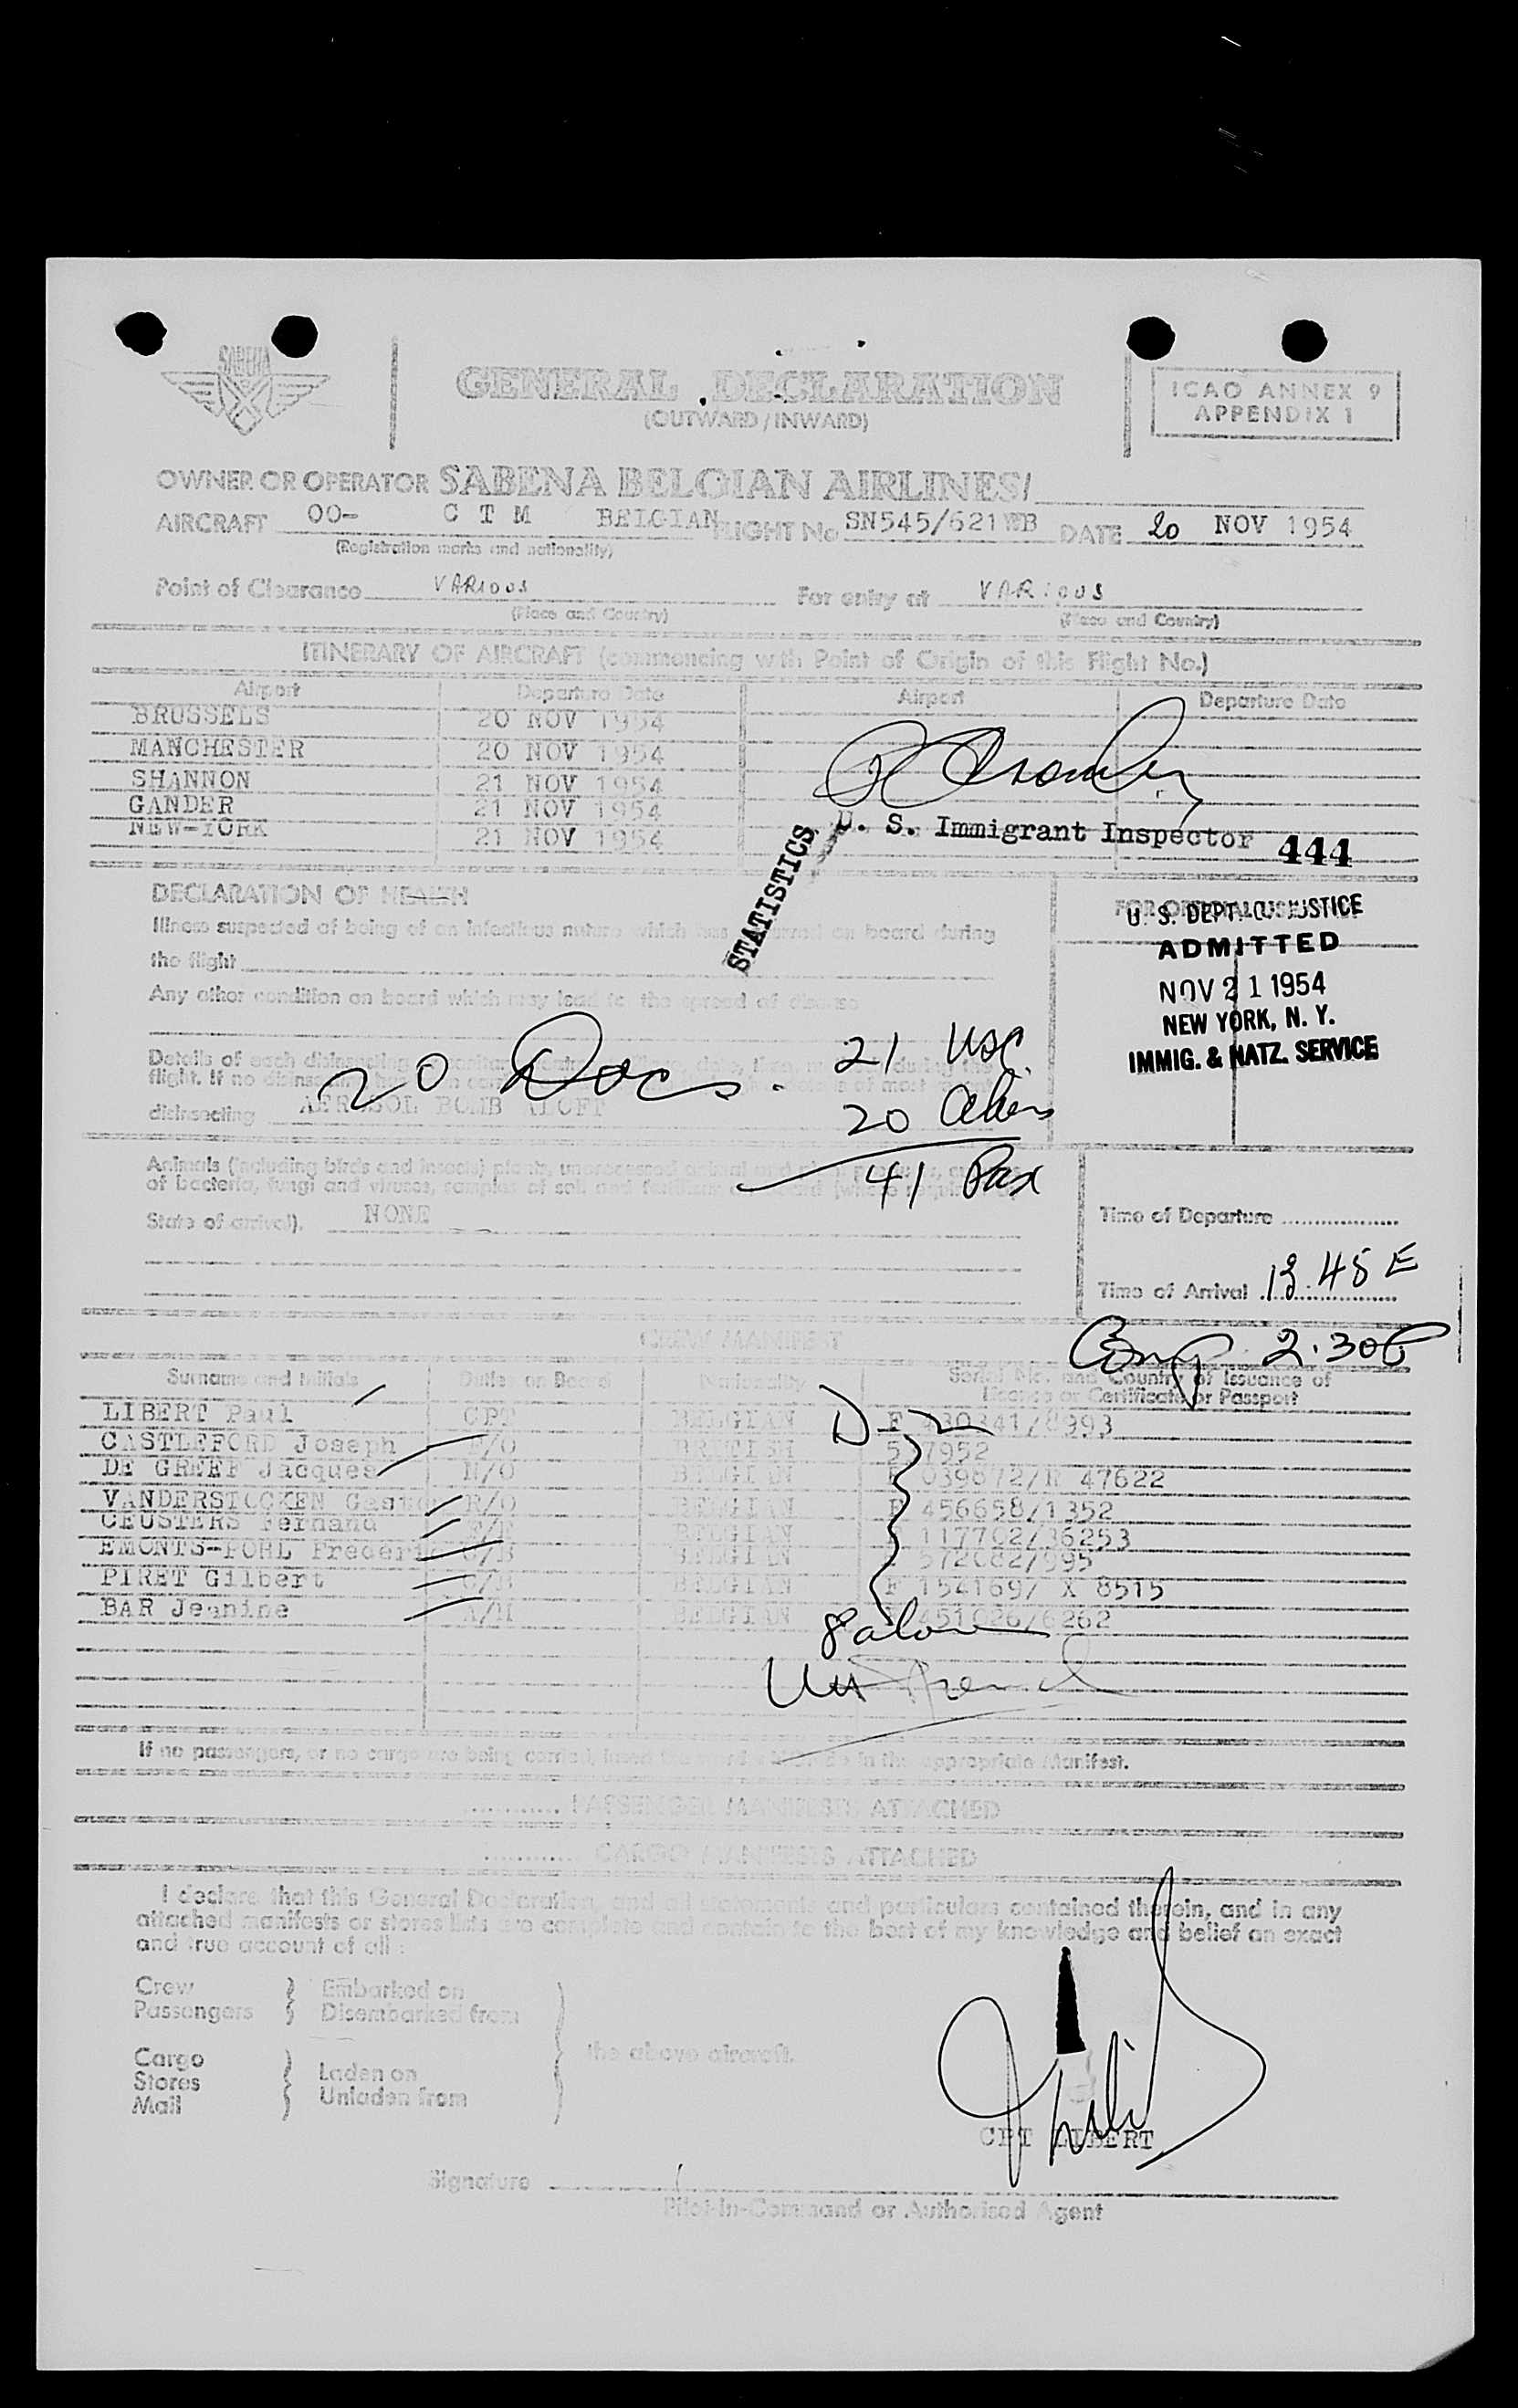 SABENA
GENERAL DECLARATION
(OUTWARD / INWARD)
ICAO ANNEX 9
APPENDIX 1
OWNER OR OPERATOR SABENA BELGIAN AIRLINES/
AIRCRAFT OO- C T M BELGIAN FLIGHT No SN545/621 WB DATE 20 NOV 1954
(Registration marks and nationality)
Point of Clearance VARIOUS For entry at VARIOUS
(Place and Country) (Place and Country)
ITINERARY OF AIRCRAFT (commencing with Point of Origin of this Flight No.)
Airport Departure Date Airport Departure Date
BRUSSELS 20 NOV 1954
MANCHESTER 20 NOV 1954
SHANNON 21 NOV 1954
GANDER 21 NOV 1954
NEW-YORK 21 NOV 1954
U. S. Immigrant Inspector 444
STATISTICS
DECLARATION OF HEALTH
Illness suspected of being of an infectious nature which has occurred on board during
the flight
Any other condition on board which may lead to the spread of disease
FOR OFFICIAL USE
U. S. DEPT. JUSTICE
ADMITTED
NOV 21 1954
NEW YORK, N. Y.
IMMIG. & NATZ. SERVICE
Details of each disinsecting
flight. If no disinsecting of most recent
disinsecting AEROSOL BOMB ALOFT
20 Docs. 21 USC
20 Aliens
41 Pax
Animals (including birds and insects) plants, unprocessed animal and
of bacteria, fungi and viruses, samples of soil and
State of arrival). NONE
Time of Departure
Time of Arrival 13.45 E
Comp 2.30
CREW MANIFEST
Surname and Initials Duties on Board Nationality Serial No. and Country of Issuance of
Licence or Certificate or Passport
LIBERT Paul CPT BELGIAN 430341/8993
CASTLEFORD Joseph F/O BRITISH 7952
DE GREEF Jacques N/O BELGIAN 47622
VANDERSTOCKEN R/O BELGIAN 456658/1352
CEUSTERS Fernand BELGIAN 117702/36253
EMONTS-POHL Frederi BELGIAN
PIRET Gilbert BELGIAN 154169/ X 8515
BAR Jeanine A/H BELGIAN 451026/6262
If no passengers, or no cargo are being carried, in the appropriate Manifest.
PASSENGER MANIFESTS ATTACHED
CARGO MANIFESTS ATTACHED
I declare that this General Declaration, and all statements and particulars contained therein, and in any
attached manifests or stores lists are complete and contain to the best of my knowledge and belief an exact
and true account of all :
Crew Embarked on
Passengers Disembarked from
the above aircraft.
Cargo
Stores Laden on
Mail Unladen from
CPT LIBERT
Signature
Pilot-in-Command or Authorised Agent